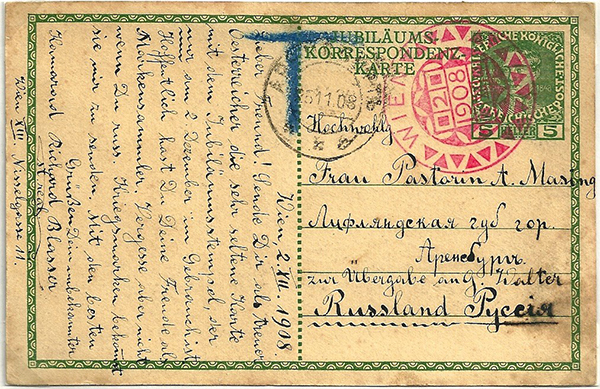 JUBILÄUMS-
KORRESPONDENZ-
KARTE
WIEN
2
XII
1908
5 HELLER 5
25 11 08
T
Hochwohlg
Frau Pastorin A. Masing
Лифляндская губ гор.
Аренбургъ
zur Übergabe an G. Walter
Russland Руссія
Wien, 2 XII 1908.
Lieber Freund! Sende Dir als treuer
Oesterreicher die sehr seltene Karte
mit dem Jubiläumsstempel, der
nur am 2 Dezember im Gebrauch ist
Hoffentlich hast Du Deine Freude als
Markensammler. Vergesse aber nicht
wenn Du russ. Kriegsmarken bekommst
sie mir zu senden. Mit den besten
Grüßen Dein unbekannter
Kamerad Richard Blasser
Wien XIII Nisselgasse 11.